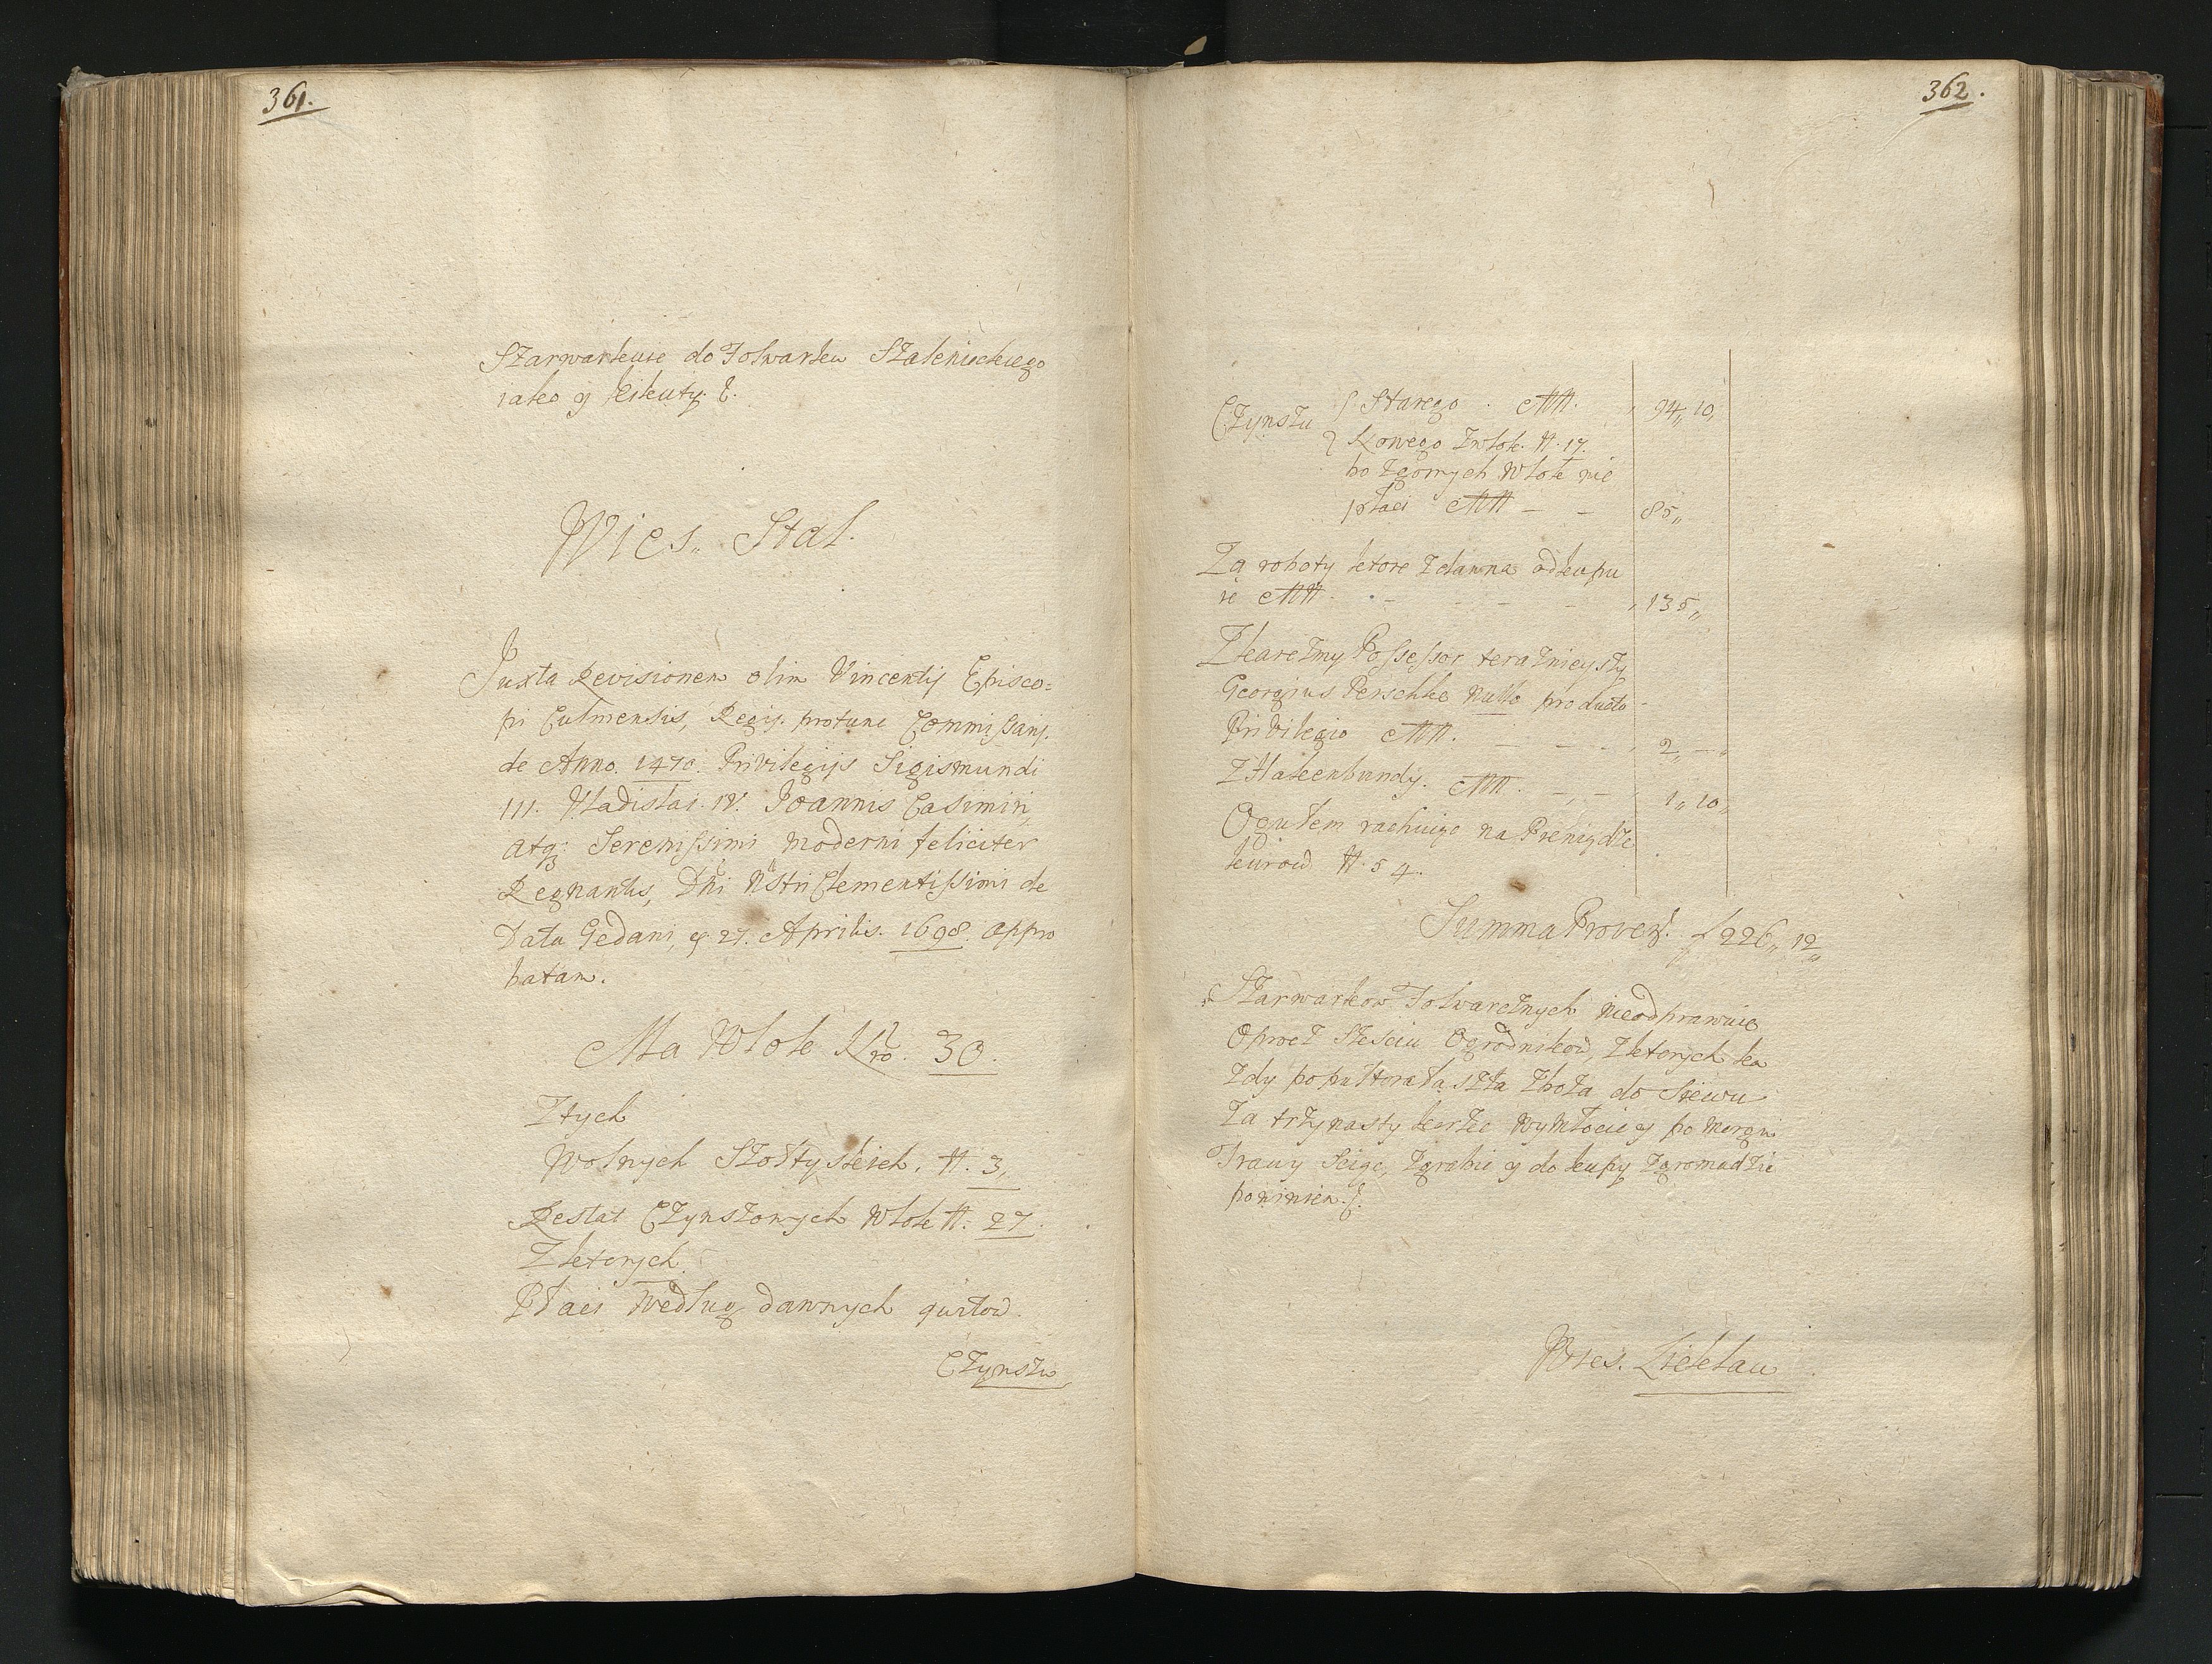 361.
Szarwarkuie do Folwarku Stalenickiego
iako y
Wies„ Stal.
Juxta Revisionem olim Vincentij Episco=
pi Culmensis, Regij protunc Commissarij.
de Anno. 1470. Privilegijs Sigismundi
III. Vladislai. IV. Joannis Casimiri,
atq; Serenissimi moderni feliciter
Regnantis, Dni Nstri Clementissimi de
Data Gedani, 27. Aprilis. 1698. appro
batam.
Ma Wlok Nro. 30.
Z tych
Wolnych Szołtyskich. N. 3„
Restat Czynszowych Wlok N: 27.
Z ktorych
Płaci według dawnych qwitow.
Czynszu
362.
Czynszu Starego. MM. 94„ 10„
Nowego Z wlok. N. 17.
bo z gornych Wlok nie
płaci MM – – 85„
Za roboty ktore zdawna odkupu
ie MM. – – – – 135„
Z karczmy Possessor teraznieyszy
Georgius Perschke Nullo producto
Privilegio MM. – – – 2„ –„
Z Hakenbundy. MM. – – 1„ 10„
Ogułem rachuiąc na Pieniądze
kurow N. 54.
Summa Provent. f 226„ 12„
Szarwarkow Folwarcznych nieodprawuie
Oprocz Szesciu Ogrodnikow, Z ktorych ka
zdy po pułtora łaszta zboża do Siewu
Za trzynasty korzec wymłocic y po Morgu
Trawy Sciąc, zgrabic y do kupy zgromadzic
powinien.
Wies. Lieklau